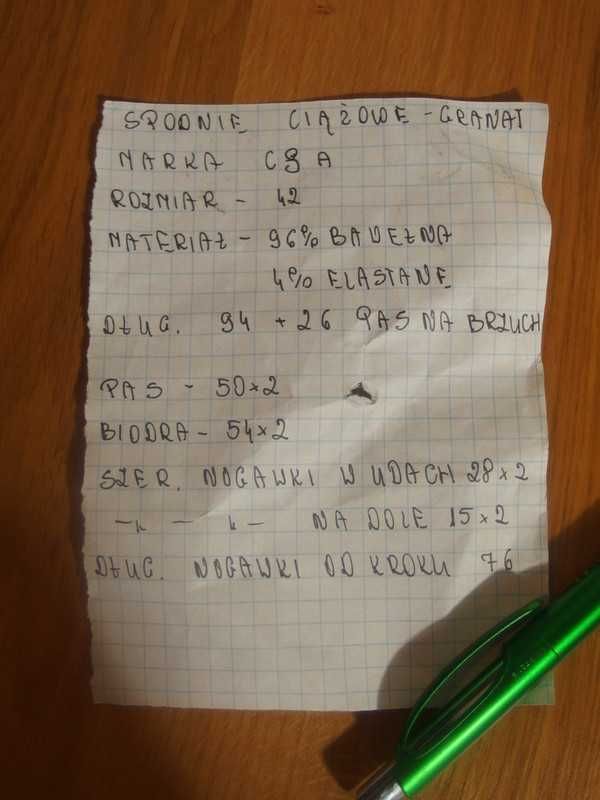 SPODNIE CIĄŻOWE - GRANAT
MARKA C&A
ROZMIAR - 42
MATERIAŁ - 96% BAWEŁNA
4% ELASTANE
DŁUG. 94 + 26 PAS NA BRZUCH
PAS - 50x2
BIODRA - 54x2
SZER. NOGAWKI W UDACH 28x2
-„- -„- NA DOLE 15x2
DŁUG. NOGAWKI OD KROKU 76